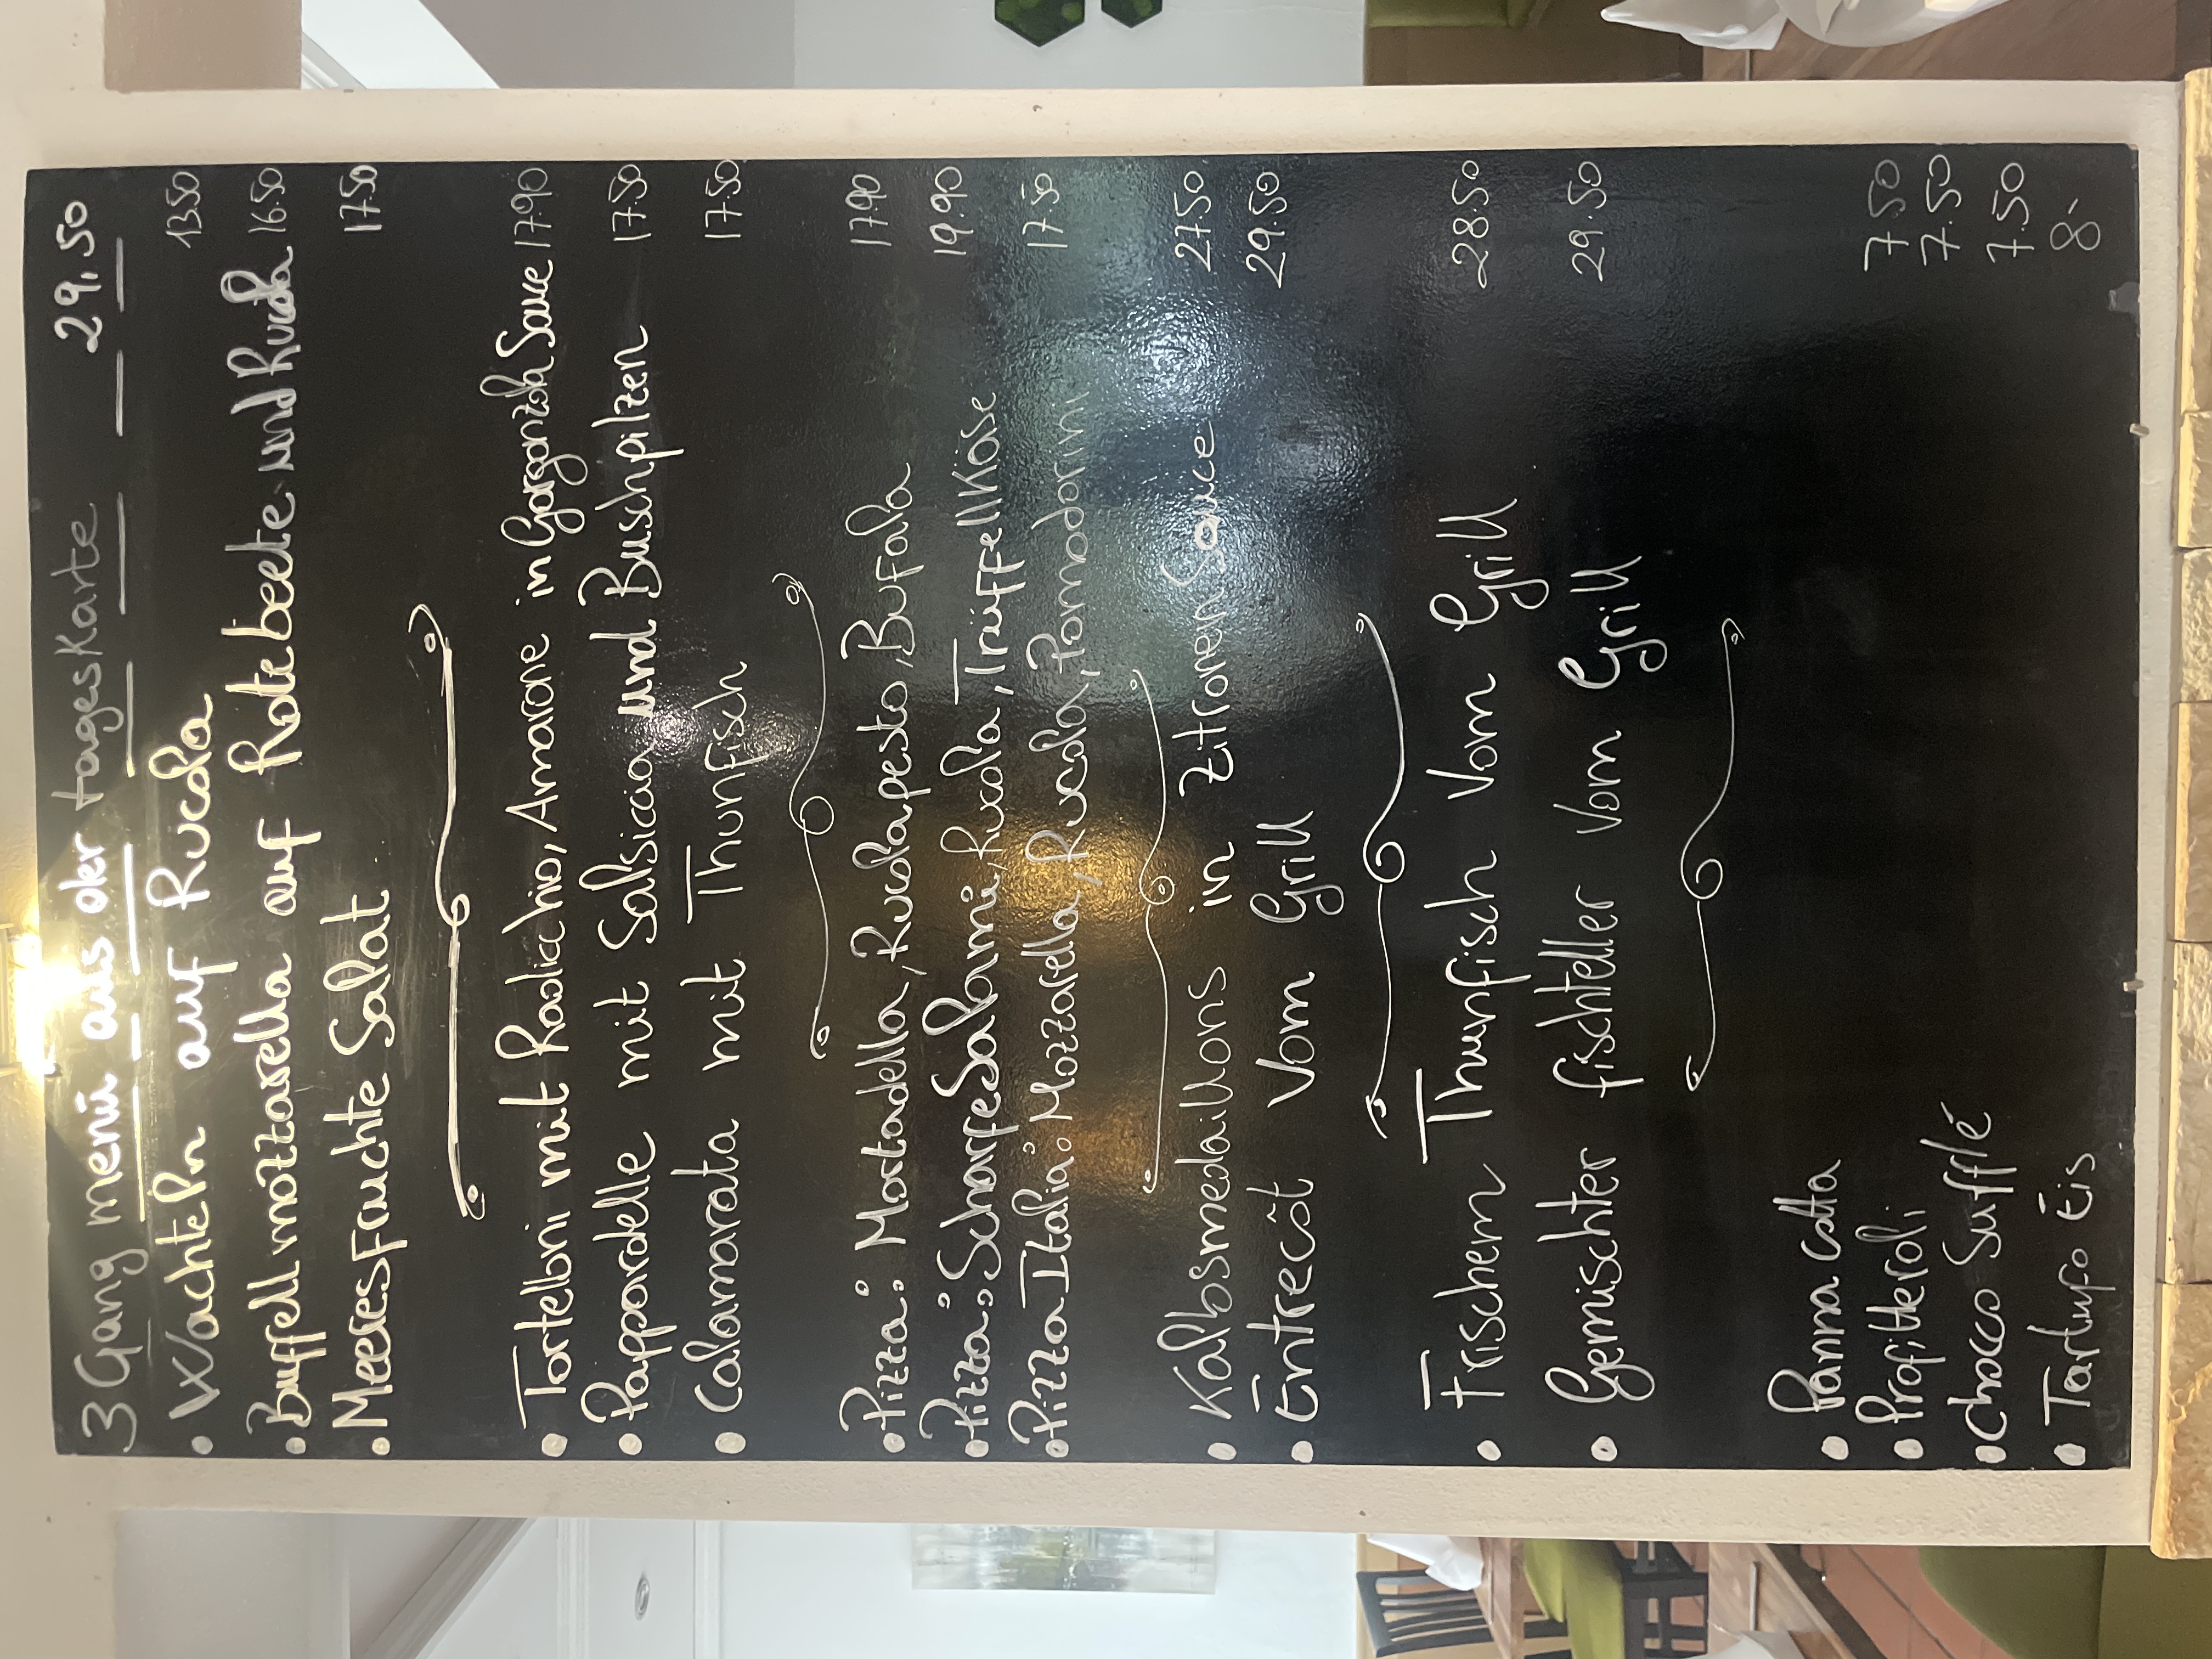 3 Gang menü aus der tagesKarte 29,50
• Wachteln auf Rucola 13.50
• Buffell mozzarella auf Rote beete und Rucola 16.50
• MeeresFruchte Salat 17.50
• Tortelloni mit Radicchio, Amarone in Gorgonzola Sauce 17.90
• Pappardelle mit Salsiccia und Buschpilzen 17.50
• Calamarata mit Thunfisch 17.50
• Pizza: Mortadella, Rucolapesto, Bufala 17.90
• Pizza: Scharfe Salami, Rucola, TrüffellKäse 19.90
• Pizza Italia: Mozzarella, Rucola, Pomodorini 17.50
• Kalbsmedaillons in Zitronen Sauce 27.50
• Entrecôt Vom Grill 29.50
• Frischem Thunfisch Vom Grill 28.50
• Gemischter fischteller Vom Grill 29.50
• Panna cotta 7.50
• Profitteroli 7.50
• chocco Sufflé 7.50
• Tartufo Eis 8,-